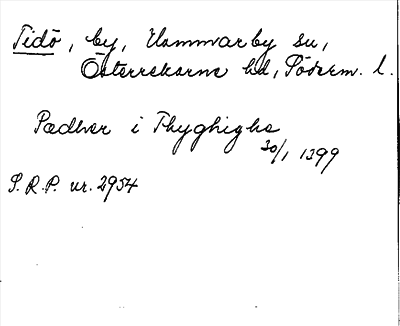 Tidö, by, Hammarby sn,
Österrekarne hd, Söderm. l.
Pædher i Thyghighe
30/1 1399
S.R.P. nr. 2954